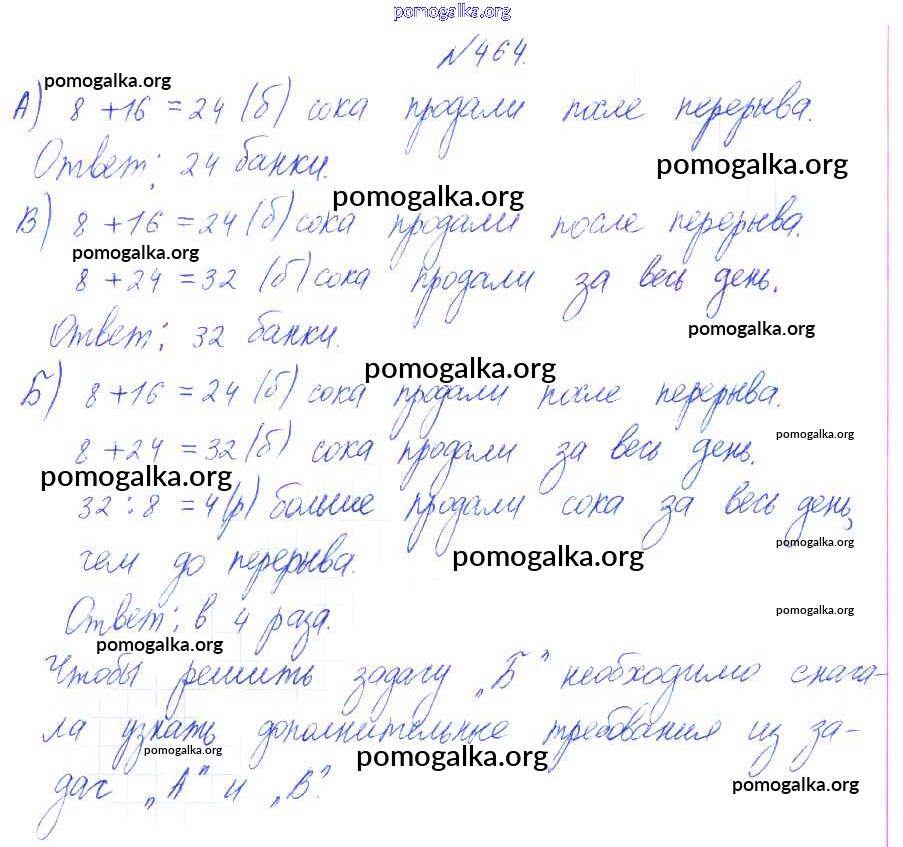 pomogalka.org
№464.
pomogalka.org
А) 8 + 16 = 24 (б) сока продали после перерыва.
Ответ: 24 банки.
pomogalka.org
pomogalka.org
В) 8 + 16 = 24 (б) сока продали после перерыва.
pomogalka.org
8 + 24 = 32 (б) сока продали за весь день.
Ответ: 32 банки.
pomogalka.org
pomogalka.org
Б) 8 + 16 = 24 (б) сока продали после перерыва.
pomogalka.org
8 + 24 = 32 (б) сока продали за весь день.
pomogalka.org
32 : 8 = 4 (р) больше продали сока за весь день,
pomogalka.org
чем до перерыва.
pomogalka.org
Ответ: в 4 раза.
pomogalka.org
pomogalka.org
Чтобы решить задачу „Б" необходимо снача-
ла узнать дополнительные требования из за-
pomogalka.org
pomogalka.org
дач „А" и „В".
pomogalka.org